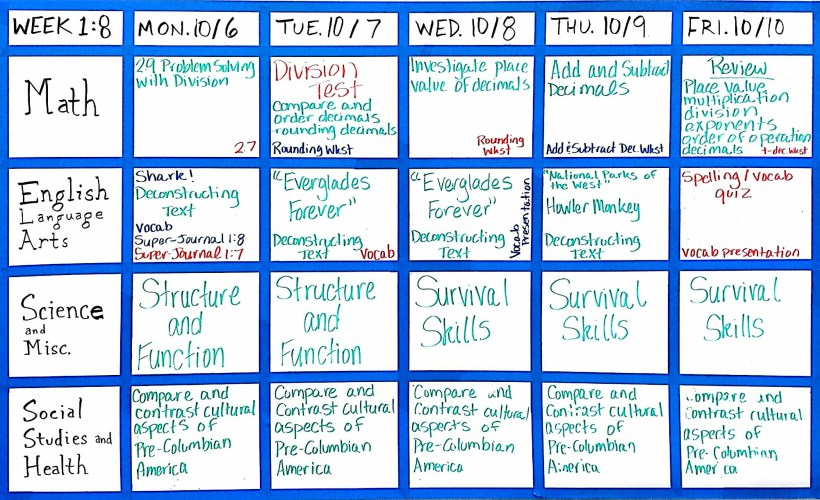 WEEK 1:8
MON. 10/6
TUE. 10/7
WED. 10/8
THU. 10/9
FRI. 10/10
Math
29 Problem Solving
with Division
27
Division
Test
compare and
order decimals
rounding decimals
Rounding Wkst
Investigate place
value of decimals
Rounding
Wkst
Add and Subtract
Decimals
Add & Subtract Dec. Wkst
Review
Place value
multiplication
division
exponents
order of operation
decimals
English
Language
Arts
Shark!
Deconstructing
Text
Vocab
Super-Journal 1:8
Super-Journal 1:7
"Everglades
Forever"
Deconstructing
Text
Vocab
"Everglades
Forever"
Deconstructing
Text
Vocab
Presentation
"National Parks of
the West"
Howler Monkey
Deconstructing
Text
Spelling/Vocab
quiz
Vocab presentation
Science
and
Misc.
Structure
and
Function
Structure
and
Function
Survival
Skills
Survival
Skills
Survival
Skills
Social
Studies and
Health
Compare and
contrast cultural
aspects of
Pre-Columbian
America
Compare and
Contrast cultural
aspects of
Pre-Columbian
America
Compare and
Contrast cultural
aspects of
Pre-Columbian
America
Compare and
Contrast cultural
aspects of
Pre-Columbian
America
Compare and
Contrast cultural
aspects of
Pre-Columbian
America